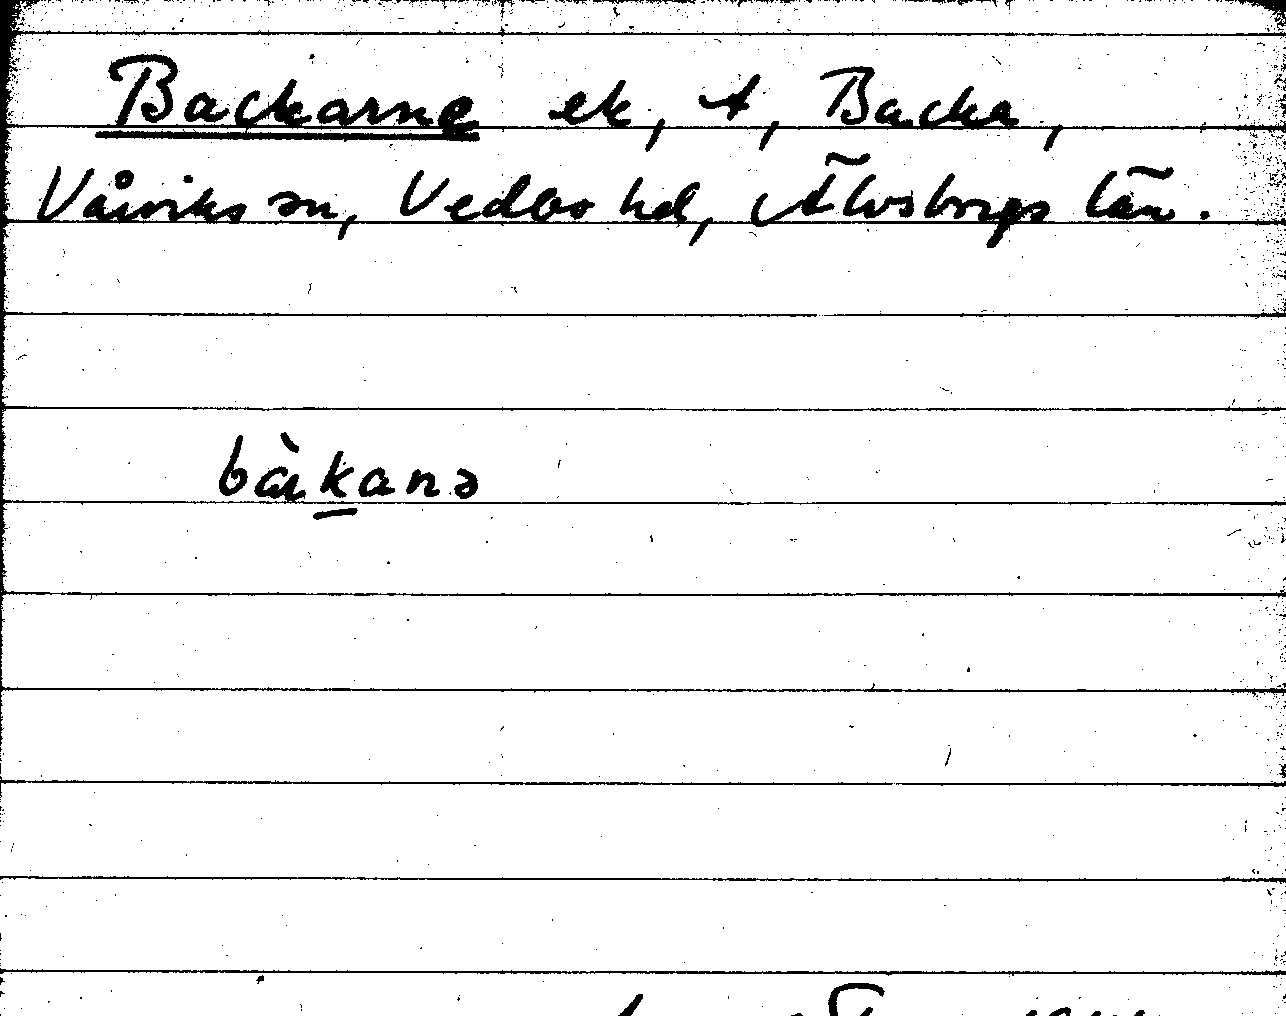 Backarne ek, A, Backa,
Vårviks sn, Vedbo hd, Älvsborgs län.
bàkanə